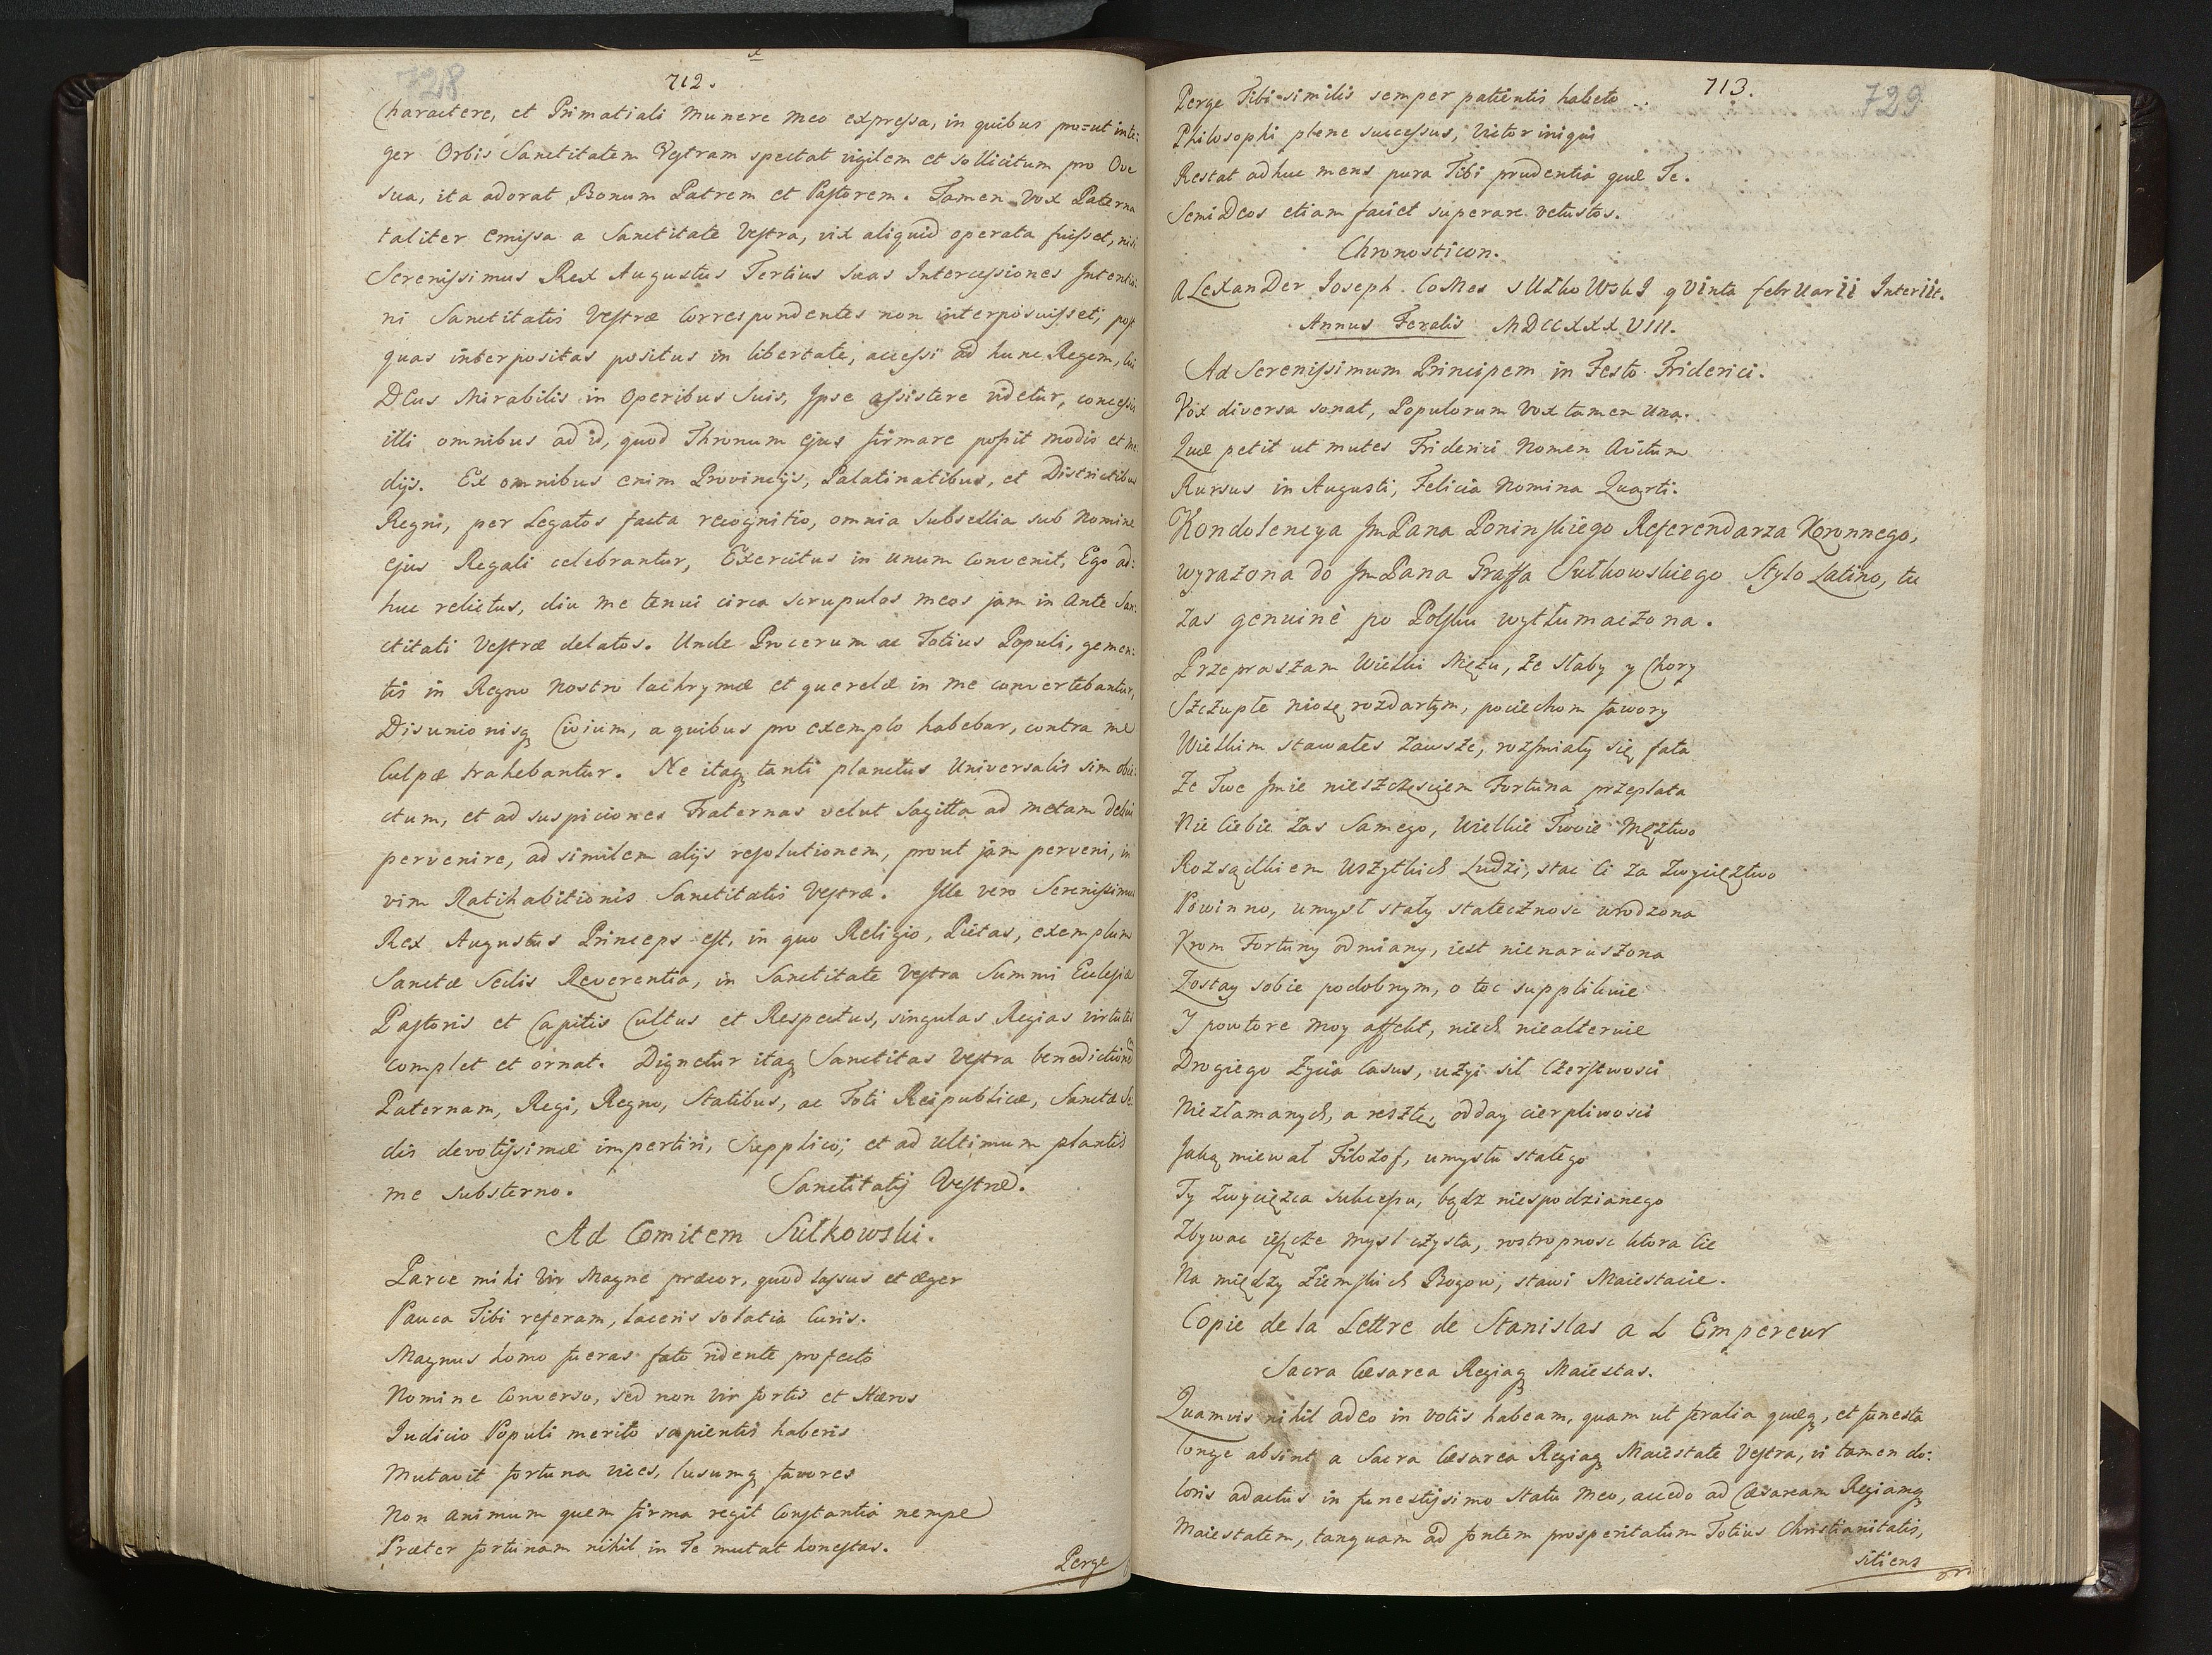 728
712.
Charactere, et Primatiali munere meo expressa, in quibus pro=ut inte:
ger Orbis Sanctitatem Vestram spectat vigilem et sollicitum pro Ove
sua, ita adorat Bonum Patrem et Pastorem. Tamen vox Paterna
taliter emissa a Sanctitate Vestra, vix aliquid operata fuisset, nisi
Serenissimus Rex Augustus Tertius suas Intercessiones Intentio:
ni Sanctitatis Vestræ Correspondentes non interposuisset; post
quas interpositas positus in libertate, accessi ad hunc Regem, cui
Deus Mirabilis in Operibus Suis, Ipse assistere videtur, concessis
illi omnibus ad id, quod Thronum ejus firmare possit modis et me:
dijs. Ex omnibus enim Provincijs, Palatinatibus, et Districtibus
Regni, per Legatos facta recognitio, omnia Subsellia sub Nomine
ejus Regali celebrantur, Exercitus in unum Convenit, Ego ad:
huc relictus, diu me tenui circa scrupulos meos jam in ante San:
ctitati Vestræ delatos. Unde Procerum ac Totius Populi, gemen:
tis in Regno Nostro lachrymæ et querelæ in me convertebantur,
Disunionisq Civium, a quibus pro exemplo habebar, contra me
Culpæ trahebantur. Ne itaq tanti planctus Universalis sim obie:
ctum, et ad suspiciones Fraternas velut Sagitta ad metam
pervenire, ad similem alijs resolutionem, prout jam perveni, in
vim Ratihabitionis Sanctitatis Vestræ. Ille vero Serenissimus
Rex Augustus Princeps est, in quo Religio, Pietas, exemplum
Sanctæ Sedis Reverentia, in Sanctitate Vestra Summi Eclesiæ
Pastoris et Capitis Cultus et Respectus, singulas Regias virtutes
complet et ornat. Dignetur itaq Sanctitas Vestra benedictionem
Paternam, Regi, Regno, Statibus, ac Toti Reipublicæ, Sanctæ Se:
dis devotissimæ impertiri, Supplico; et ad ultimum plantis
me substerno. Sanctitatis Vestræ.
Ad Comitem Sułkowski.
Parce mihi Vir Magne præcor, quod lassus et æger
Pauca Tibi referam, laceris solatia Curis.
Magnus homo fueras fato ridente profecto
Nomine Converso, sed non vir fortis et Hæros
Iudicio Populi merito sapientis haberis
Mutavit fortuna vices, lusumq favores
Non animum quem firma regit Constantia nempe
Præter fortunam nihil in Te mutat honestas.
Perge
713.
729
Perge Tibi similis semper patientis habeto
Philosophi plene successus, Victor iniqui
Restat adhuc mens pura Tibi prudentia quæ Te.
Semi Deos etiam faciet superare vetustos.
Chronosticon.
ALeXanDer Ioseph CoMes sUłkoWskI qVInta febrUarII InterIIt.
Annus Feralis MDCCXXXVIII.
Ad Serenissimum Principem in Festo Friderici.
Vox diversa sonat, Populorum vox tamen una.
Quæ petit ut mutes Friderici Nomen Avitum
Rursus in Augusti, Felicia Nomina Quarti.
Kondolencya Jm Pana Poninskiego Referendarza Koronnego,
wyrazona do Jm Pana Graffa Sułkowskiego Stylo Latino, tu
zas genuinè po Polsku wytłumaczona.
Przepraszam Wielki Mężu, że słaby y Chory
Szczupłe niosę rozdartym, pociechom fawory
Wielkim stawałes zawsze, rozsmiały się fata
Ze Twe Jmie nieszczęsciem Fortuna przeplata
Nie Ciebie zas Samego, Wielkie Twoie Męztwo
Rozsądkiem Wszytkich Ludzi, stac Ci za Zwycięztwo
Powinno, umysł stały statecznosc wrodzona
Krom Fortuny odmiany, iest nienaruszona
Zostay sobie podobnym, o toc supplikuie
I powtore moy affekt, niech niealteruie
Drogiego Zycia Casus, użyi sił Czerstwosci
Niezłamanych, a resztę odday cierpliwosci
Jaką miewał Filozof, umysłu stałego
Ty Zwycięzca sukcessu, bądz niespodzianego
Zbywac ieszcze mysl czysta, rostropnosc ktora Cie
Na między Ziemskich Bogow, stawi Maiestacie.
Copie de la Lettre de Stanislas a L Empereur
Sacra Cæsarea Regiaq Maiestas.
Quamvis nihil adeo in votis habeam, quam ut feralia quæq, et funesta
longe absint a Sacra Cæsarea Regiaq Maiestate Vestra, vi tamen do:
loris adactus in funestissimo Statu meo, accedo ad Cæsaream Regiamq
Maiestatem, tanquam ad fontem prosperitatum Totius Christianitatis,
sitiens